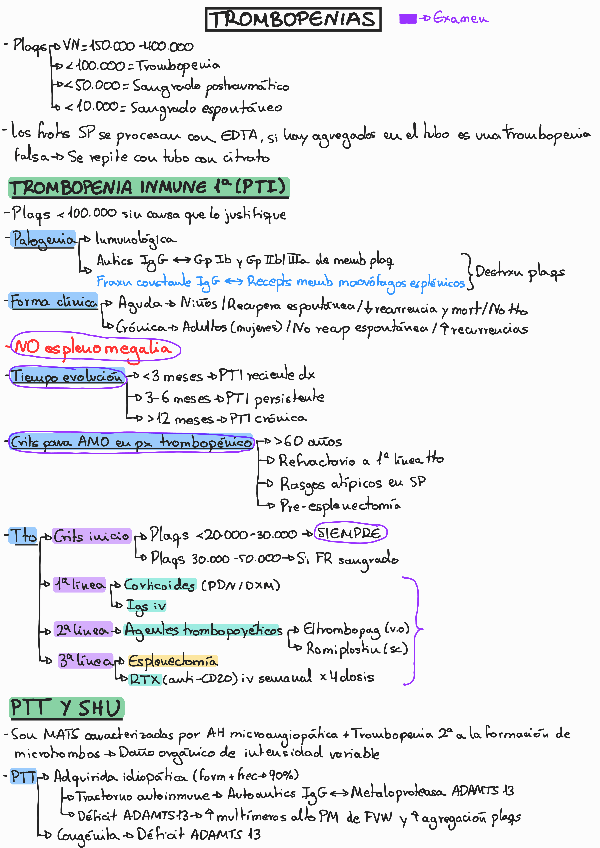 TROMBOPENIAS
→ Examen
- Plaqs → VN = 150.000 - 400.000
→ <100.000 = Trombopenia
→ <50.000 = Sangrado postraumático
→ <10.000 = Sangrado espontáneo
- Los frotis SP se procesan con EDTA, si hay agregados en el tubo es una trombopenia
falsa → Se repite con tubo con citrato
TROMBOPENIA INMUNE 1ª (PTI)
- Plaqs <100.000 sin causa que lo justifique
- Patogenia → Inmunológica
→ Autics IgG ↔ Gp Ib y Gp IIb/IIIa de memb plaq
Fraxn constante IgG ↔ Recepts memb macrófagos esplénicos } Destrxn plaqs
- Forma clínica → Aguda → Niños / Recupera espontánea / ↓ recurrencia y mort / No tto
→ Crónica → Adultos (mujeres) / No recup espontánea / ↑ recurrencias
- NO esplenomegalia
- Tiempo evolución → <3 meses → PTI reciente dx
→ 3-6 meses → PTI persistente
→ >12 meses → PTI crónica
- Crits para AMO en px trombopénico → >60 años
→ Refractorio a 1ª línea tto
→ Rasgos atípicos en SP
→ Pre-esplenectomía
- Tto → Crits inicio → Plaqs <20.000-30.000 → SIEMPRE
→ Plaqs 30.000-50.000 → Si FR sangrado
→ 1ª línea → Corticoides (PDN/DXM)
→ Igs iv
→ 2ª línea → Agentes trombopoyéticos → Eltrombopag (v.o)
→ Romiplostin (sc)
→ 3ª línea → Esplenectomía
→ RTX (anti-CD20) iv semanal x 4 dosis
PTT Y SHU
- Son MATS caracterizadas por AH microangiopática + Trombopenia 2ª a la formación de
microtrombos → Daño orgánico de intensidad variable
- PTT → Adquirida idiopática (form + frec → 90%)
→ Trastorno autoinmune → Autoantics IgG ↔ Metaloproteasa ADAMTS 13
→ Déficit ADAMTS13 → ↑ multímeros alto PM de FVW y ↑ agregación plaqs
→ Congénita → Déficit ADAMTS 13